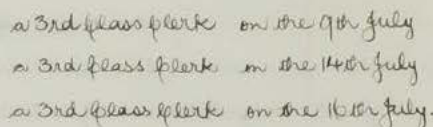 a 3rd Class Clerk on the 9th July
a 3rd Class Clerk on the 14th July
a 3rd Class Clerk on the 16th July.